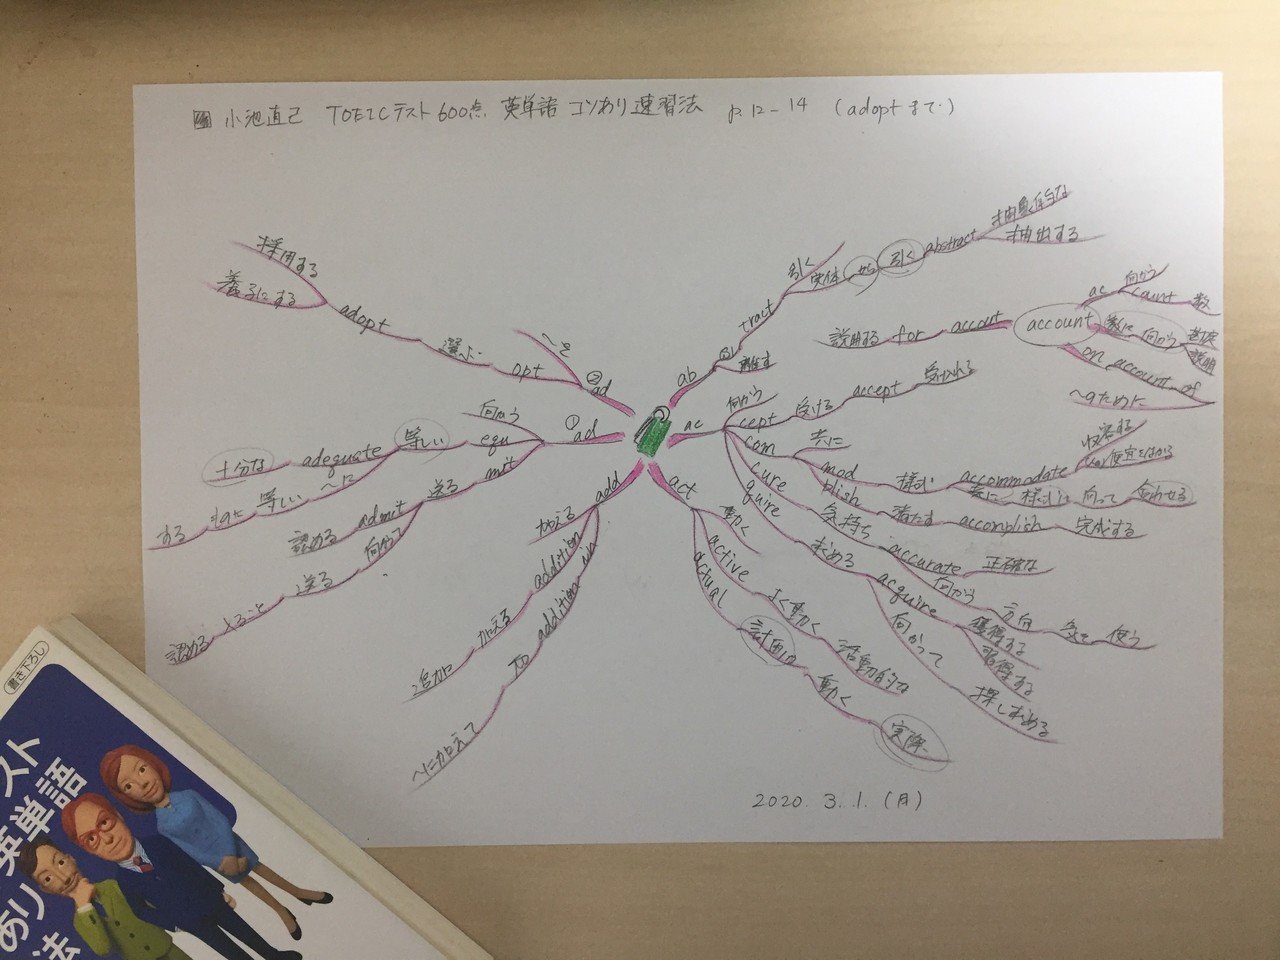 小池直己 TOEICテスト600点 英単語 コツあり速習法 p.12-14 (adoptまで)
採用する
養子にする
adopt
選ぶ
opt
～を
② ad
① ad
向かう
equ
等しい
adequate
十分な
～に
等しい
する
mit
送る
admit
認める
向かって
送る
入ること
認める
add
加える
addition
加える
追加
in addition
to
～に加えて
ab
離す
tract
引く
実体
から
引く
abstract
抽象的な
抽出する
ac
向かう
cept
受ける
accept
受け入れる
account
account
for
説明する
ac
向かう
count
数
数に
向かう
勘定
説明
on account of
～のために
com
共に
mod
様式
accommodate
収容する
便宜をはかる
共に
様式に
向って
合わせる
plish
満たす
accomplish
完成する
cure
気持ち
accurate
正確な
向かう
方向
気を
使う
quire
求める
acquire
獲得する
習得する
向かって
探し求める
act
動く
active
よく動く
活動的な
actual
計画は
動く
実際
2020. 3. 1. (月)
書き下ろし
スト
英単語
あり
法